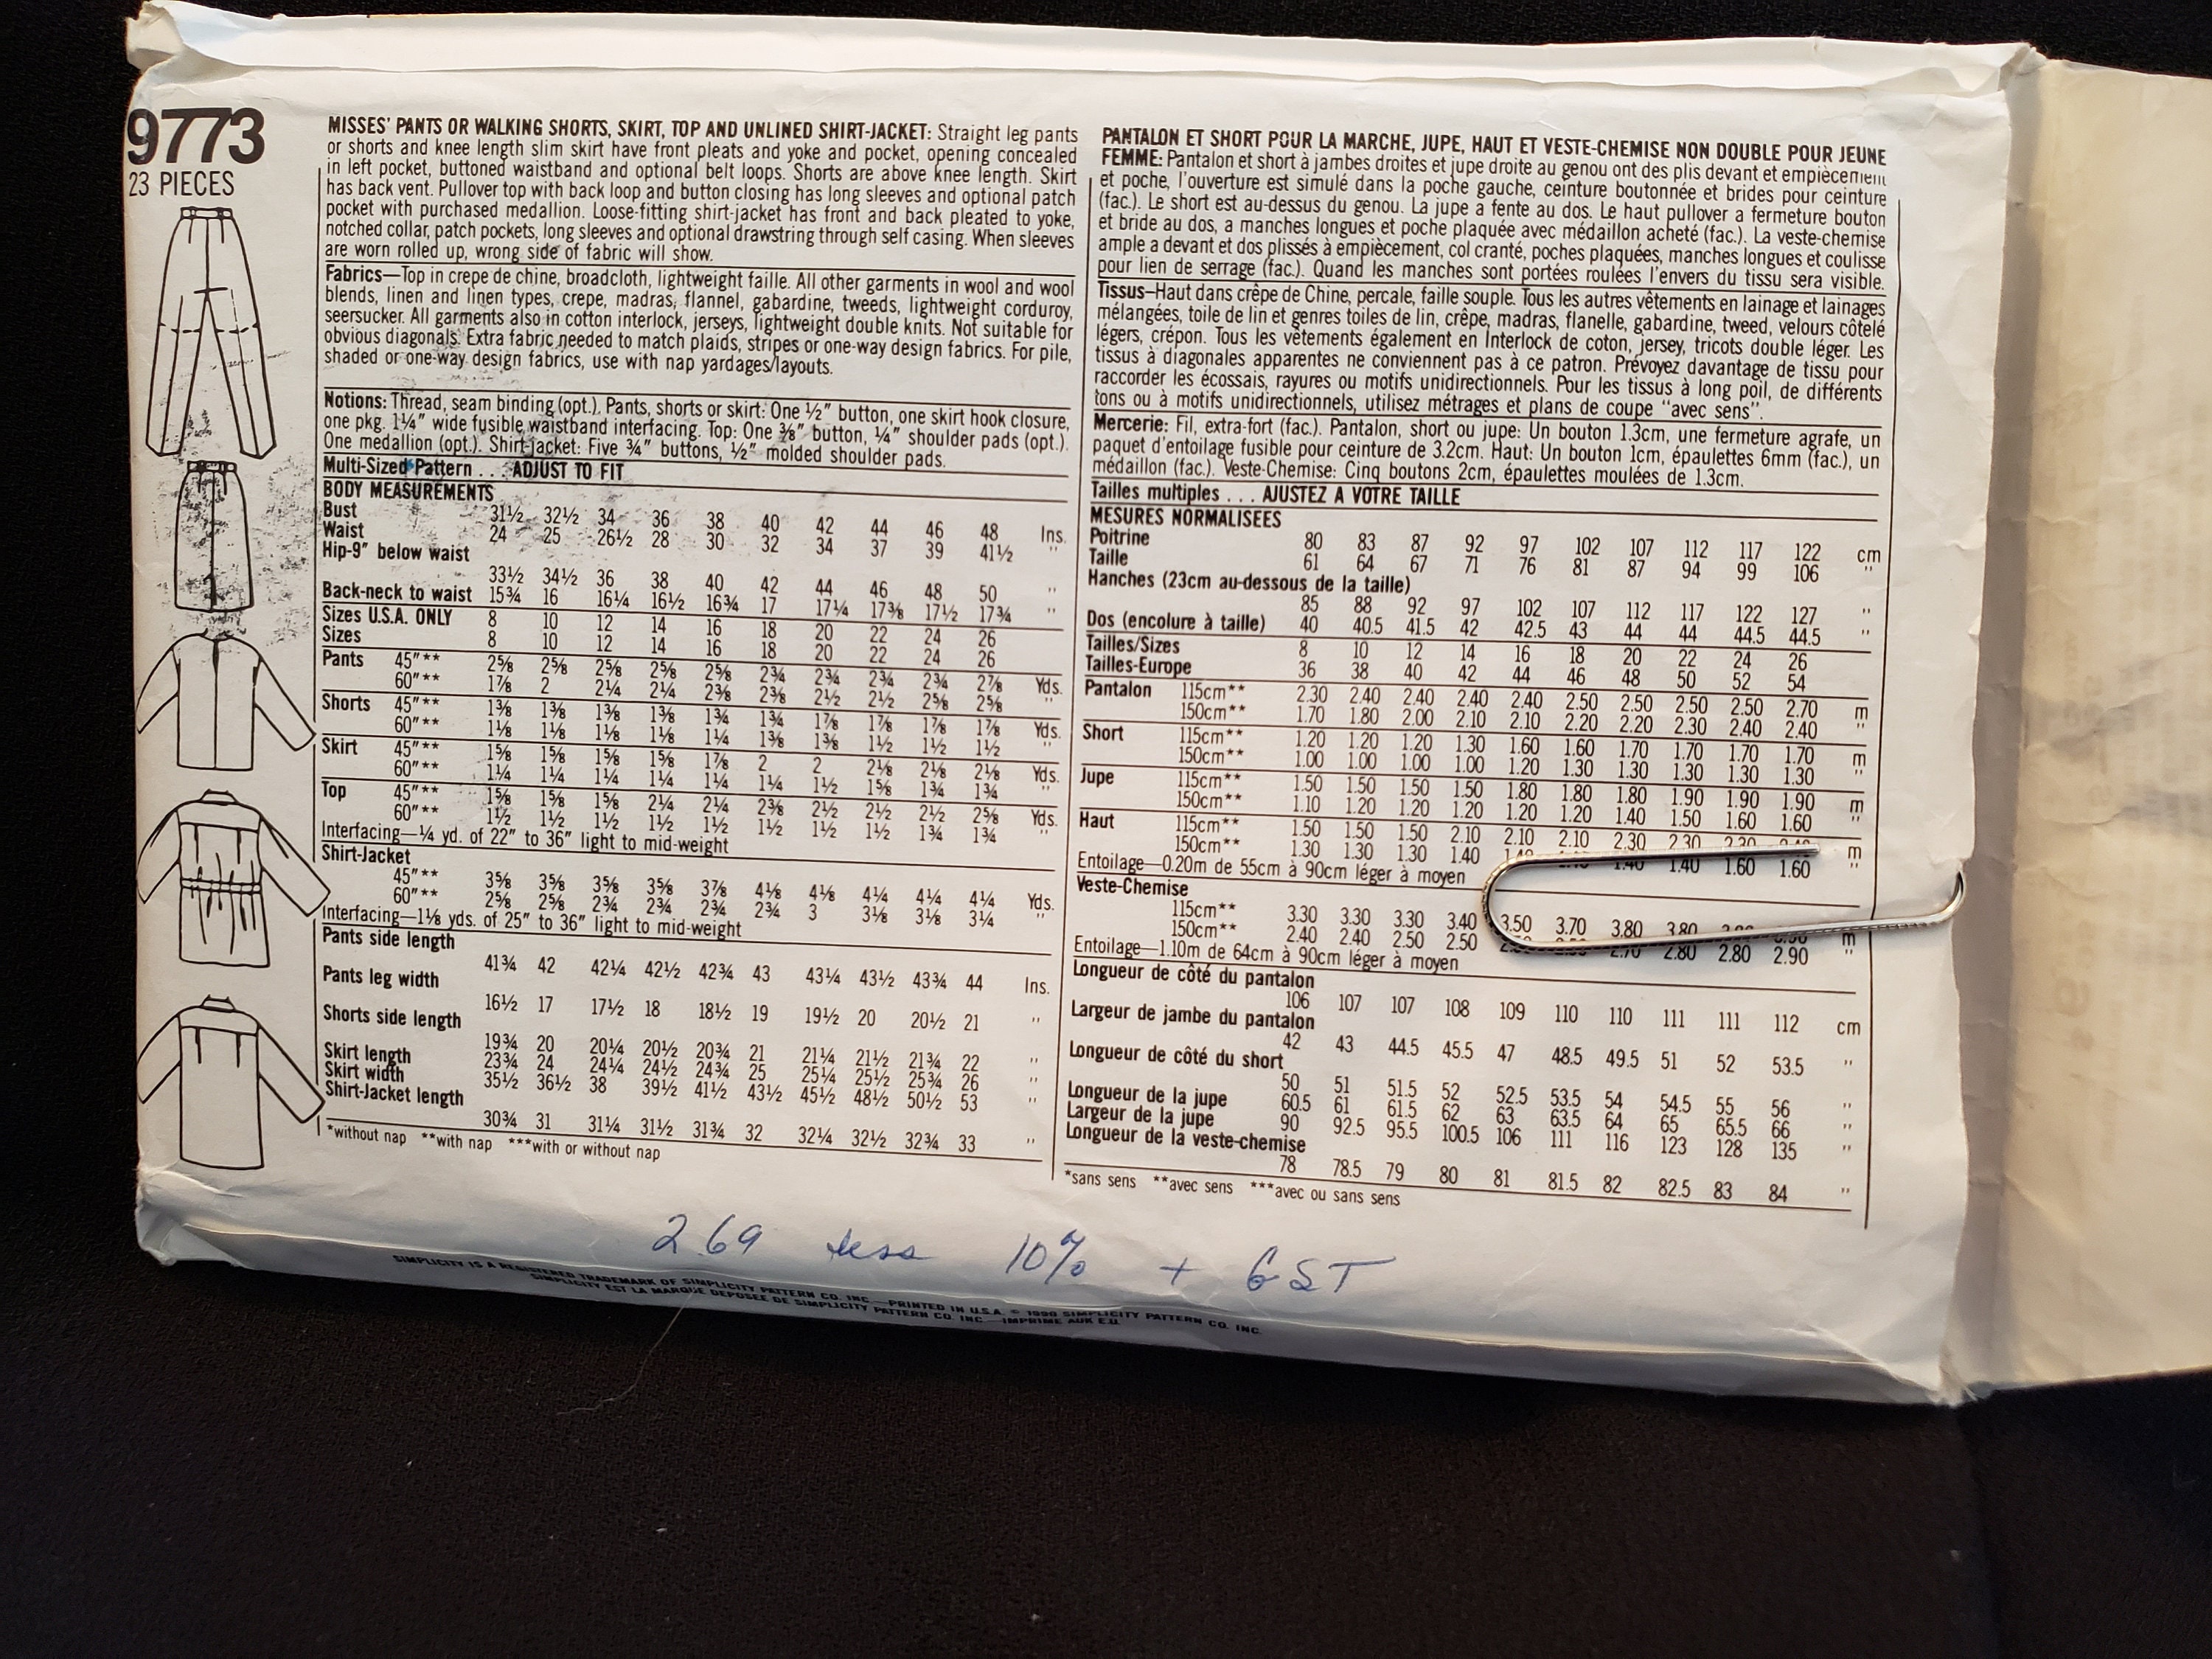 9773
23 PIECES
MISSES' PANTS OR WALKING SHORTS, SKIRT, TOP AND UNLINED SHIRT-JACKET: Straight leg pants
or shorts and knee length slim skirt have front pleats and yoke and pocket, opening concealed
in left pocket, buttoned waistband and optional belt loops. Shorts are above knee length. Skirt
has back vent. Pullover top with back loop and button closing has long sleeves and optional patch
pocket with purchased medallion. Loose-fitting shirt-jacket has front and back pleated to yoke,
notched collar, patch pockets, long sleeves and optional drawstring through self casing. When sleeves
are worn rolled up, wrong side of fabric will show.
Fabrics—Top in crepe de chine, broadcloth, lightweight faille. All other garments in wool and wool
blends, linen and linen types, crepe, madras, flannel, gabardine, tweeds, lightweight corduroy,
seersucker. All garments also in cotton interlock, jerseys, lightweight double knits. Not suitable for
obvious diagonals. Extra fabric needed to match plaids, stripes or one-way design fabrics. For pile,
shaded or one-way design fabrics, use with nap yardages/layouts.
Notions: Thread, seam binding (opt.). Pants, shorts or skirt: One ½" button, one skirt hook closure,
one pkg. 1¼" wide fusible waistband interfacing. Top: One ⅜" button, ¼" shoulder pads (opt.).
One medallion (opt.). Shirt-jacket: Five ¾" buttons, ½" molded shoulder pads.
Multi-Sized Pattern . . . ADJUST TO FIT
BODY MEASUREMENTS
Bust 31½ 32½ 34 36 38 40 42 44 46 48 Ins.
Waist 24 25 26½ 28 30 32 34 37 39 41½ "
Hip-9" below waist
33½ 34½ 36 38 40 42 44 46 48 50 "
Back-neck to waist 15¾ 16 16¼ 16½ 16¾ 17 17¼ 17⅜ 17½ 17¾ "
Sizes U.S.A. ONLY 8 10 12 14 16 18 20 22 24 26
Sizes 8 10 12 14 16 18 20 22 24 26
Pants 45"** 2⅝ 2⅝ 2⅝ 2⅝ 2⅝ 2¾ 2¾ 2¾ 2¾ 2⅞ Yds.
60"** 1⅞ 2 2¼ 2¼ 2⅜ 2⅜ 2½ 2½ 2⅝ 2⅝ "
Shorts 45"** 1⅜ 1⅜ 1⅜ 1⅜ 1¾ 1¾ 1⅞ 1⅞ 1⅞ 1⅞ Yds.
60"** 1⅛ 1⅛ 1⅛ 1⅛ 1¼ 1⅜ 1⅜ 1½ 1½ 1½ "
Skirt 45"** 1⅝ 1⅝ 1⅝ 1⅝ 1⅞ 2 2 2⅛ 2⅛ 2⅛ Yds.
60"** 1¼ 1¼ 1¼ 1¼ 1¼ 1¼ 1½ 1⅝ 1¾ 1¾ "
Top 45"** 1⅝ 1⅝ 1⅝ 2¼ 2¼ 2⅜ 2½ 2½ 2½ 2⅝ Yds.
60"** 1½ 1½ 1½ 1½ 1½ 1½ 1½ 1½ 1¾ 1¾ "
Interfacing—¼ yd. of 22" to 36" light to mid-weight
Shirt-Jacket
45"** 3⅝ 3⅝ 3⅝ 3⅝ 3⅞ 4⅛ 4⅛ 4¼ 4¼ 4¼ Yds.
60"** 2⅝ 2⅝ 2¾ 2¾ 2¾ 2¾ 3 3⅛ 3⅛ 3¼ "
Interfacing—1⅛ yds. of 25" to 36" light to mid-weight
Pants side length
41¾ 42 42¼ 42½ 42¾ 43 43¼ 43½ 43¾ 44 Ins.
Pants leg width
16½ 17 17½ 18 18½ 19 19½ 20 20½ 21 "
Shorts side length
19¾ 20 20¼ 20½ 20¾ 21 21¼ 21½ 21¾ 22 "
Skirt length 23¾ 24 24¼ 24½ 24¾ 25 25¼ 25½ 25¾ 26 "
Skirt width 35½ 36½ 38 39½ 41½ 43½ 45½ 48½ 50½ 53 "
Shirt-Jacket length
30¾ 31 31¼ 31½ 31¾ 32 32¼ 32½ 32¾ 33 "
*without nap **with nap ***with or without nap
PANTALON ET SHORT POUR LA MARCHE, JUPE, HAUT ET VESTE-CHEMISE NON DOUBLE POUR JEUNE
FEMME: Pantalon et short à jambes droites et jupe droite au genou ont des plis devant et empiècement
et poche, l'ouverture est simulé dans la poche gauche, ceinture boutonnée et brides pour ceinture
(fac.). Le short est au-dessus du genou. La jupe a fente au dos. Le haut pullover a fermeture bouton
et bride au dos, a manches longues et poche plaquée avec médaillon acheté (fac.). La veste-chemise
ample a devant et dos plissés à empiècement, col cranté, poches plaquées, manches longues et coulisse
pour lien de serrage (fac.). Quand les manches sont portées roulées l'envers du tissu sera visible.
Tissus—Haut dans crêpe de Chine, percale, faille souple. Tous les autres vêtements en lainage et lainages
mélangées, toile de lin et genres toiles de lin, crêpe, madras, flanelle, gabardine, tweed, velours côtelé
légers, crépon. Tous les vêtements également en Interlock de coton, jersey, tricots double léger. Les
tissus à diagonales apparentes ne conviennent pas à ce patron. Prévoyez davantage de tissu pour
raccorder les écossais, rayures ou motifs unidirectionnels. Pour les tissus à long poil, de différents
tons ou à motifs unidirectionnels, utilisez métrages et plans de coupe "avec sens".
Mercerie: Fil, extra-fort (fac.). Pantalon, short ou jupe: Un bouton 1.3cm, une fermeture agrafe, un
paquet d'entoilage fusible pour ceinture de 3.2cm. Haut: Un bouton 1cm, épaulettes 6mm (fac.), un
médaillon (fac.). Veste-Chemise: Cinq boutons 2cm, épaulettes moulées de 1.3cm.
Tailles multiples . . . AJUSTEZ A VOTRE TAILLE
MESURES NORMALISEES
Poitrine 80 83 87 92 97 102 107 112 117 122 cm
Taille 61 64 67 71 76 81 87 94 99 106 "
Hanches (23cm au-dessous de la taille)
85 88 92 97 102 107 112 117 122 127 "
Dos (encolure à taille) 40 40.5 41.5 42 42.5 43 44 44 44.5 44.5 "
Tailles/Sizes 8 10 12 14 16 18 20 22 24 26
Tailles-Europe 36 38 40 42 44 46 48 50 52 54
Pantalon 115cm** 2.30 2.40 2.40 2.40 2.40 2.50 2.50 2.50 2.50 2.70 m
150cm** 1.70 1.80 2.00 2.10 2.10 2.20 2.20 2.30 2.40 2.40 "
Short 115cm** 1.20 1.20 1.20 1.30 1.60 1.60 1.70 1.70 1.70 1.70 m
150cm** 1.00 1.00 1.00 1.00 1.20 1.30 1.30 1.30 1.30 1.30 "
Jupe 115cm** 1.50 1.50 1.50 1.50 1.80 1.80 1.80 1.90 1.90 1.90 m
150cm** 1.10 1.20 1.20 1.20 1.20 1.20 1.40 1.50 1.60 1.60 "
Haut 115cm** 1.50 1.50 1.50 2.10 2.10 2.10 2.30 2.30 2.30 m
150cm** 1.30 1.30 1.30 1.40 1.40 1.40 1.60 1.60 "
Entoilage—0.20m de 55cm à 90cm léger à moyen
Veste-Chemise
115cm** 3.30 3.30 3.30 3.40 3.50 3.70 3.80 3.80 m
150cm** 2.40 2.40 2.50 2.50 2.70 2.80 2.80 2.90 "
Entoilage—1.10m de 64cm à 90cm léger à moyen
Longueur de côté du pantalon
106 107 107 108 109 110 110 111 111 112 cm
Largeur de jambe du pantalon
42 43 44.5 45.5 47 48.5 49.5 51 52 53.5 "
Longueur de côté du short
50 51 51.5 52 52.5 53.5 54 54.5 55 56 "
Longueur de la jupe 60.5 61 61.5 62 63 63.5 64 65 65.5 66 "
Largeur de la jupe 90 92.5 95.5 100.5 106 111 116 123 128 135 "
Longueur de la veste-chemise
78 78.5 79 80 81 81.5 82 82.5 83 84 "
*sans sens **avec sens ***avec ou sans sens
2.69 less 10% + GST
SIMPLICITY IS A REGISTERED TRADEMARK OF SIMPLICITY PATTERN CO. INC.—PRINTED IN U.S.A. © 1990 SIMPLICITY PATTERN CO. INC.
SIMPLICITY EST LA MARQUE DEPOSEE DE SIMPLICITY PATTERN CO. INC.—IMPRIME AUX E.U.